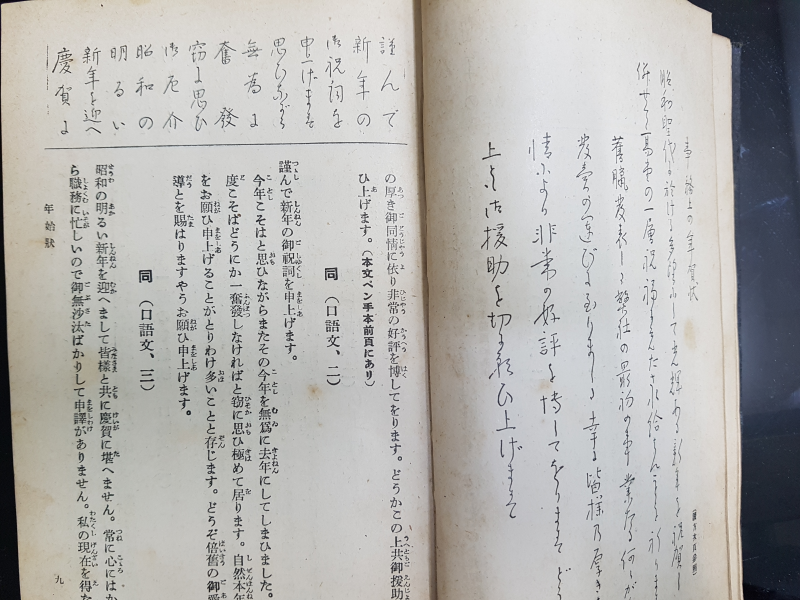 事務上の年賀状
昭和聖代に於ける
併せて
舊臘發表した弊社の最初の事業たる何々が
發賣の運びに至りました幸に皆様の厚き
情により非常の好評を博してをりますどう
上とも御援助を切に願ひ上げます
謹んで
新年の
御祝詞を
申上げます
思ひながら
無為に
奮發
窃に思ひ
御厄介
昭和の
明るい
新年を迎へ
慶賀に
の厚き御同情に依り非常の好評を博してをります。どうかこの上共御援助
ひ上げます。(本文ペン手本前頁にあり)
同 (口語文、二)
謹んで新年の御祝詞を申上げます。
今年こそはと思ひながらまたその今年を無爲に去年にしてしまひました。
度こそばどうにか一奮發しなければと窃に思ひ極めて居ります。自然本年
をお願ひ申上げることがとりわけ多いことと存じます。どうぞ倍舊の御愛
導とを賜はりますやうお願ひ申上げます。
同 (口語文、三)
昭和の明るい新年を迎へまして皆樣と共に慶賀に堪へません。常に心にはか
ら職務に忙しいので御無沙汰ばかりして申譯がありません。私の現在を得た
年始狀
九